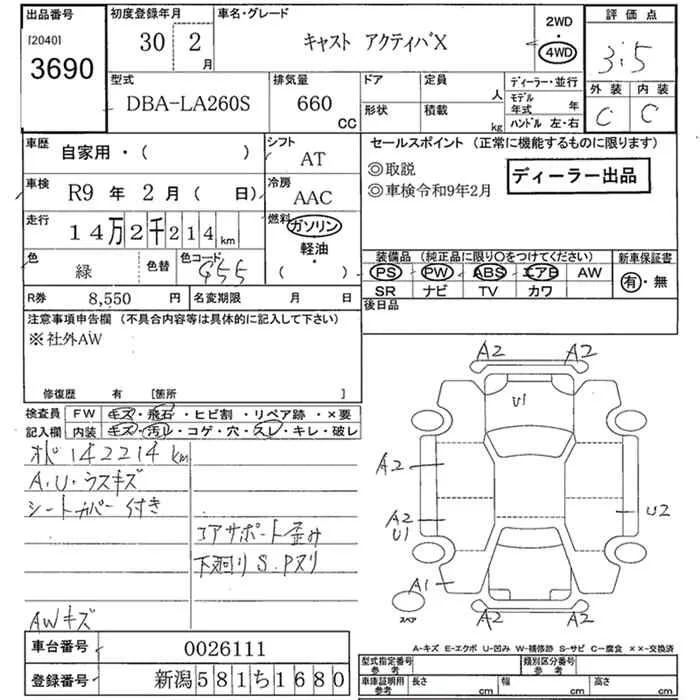 出品番号
[2040]
3690
初度登録年月
30 2 月
車名・グレード
キャスト アクティバX
2WD
・
4WD
評価点
3.5
外装 内装
C C
型式
DBA-LA260S
排気量
660 CC
ドア
定員
人
形状
積載
kg
ディーラー・並行
モデル年式 年
ハンドル 左・右
車歴
自家用・( )
シフト
AT
車検
R9 年 2 月 ( 日)
冷房
AAC
走行
14万2千214km
燃料
ガソリン
軽油・
( )
色
緑
色替
色コード
G55
R券 8,550 円
名変期限 月 日
セールスポイント (正常に機能するものに限ります)
◎取説
◎車検令和9年2月
ディーラー出品
装備品 (純正品に限り〇をつけてください)
PS PW ABS エアB AW
SR ナビ TV カワ
新車保証書
有・無
後日品
注意事項申告欄 (不具合内容等は具体的に記入して下さい)
※社外AW
修復歴 有 [箇所 ]
検査員記入欄
FW キズ・飛石・ヒビ割・リペア跡・×要
内装 キズ・汚レ・コゲ・穴・スレ・キレ・破レ
オド 142214km
A.U・ウスキズ
シートカバー付き
コアサポート歪み
下廻りS.Pヌリ
AWキズ
A2 A2
U1
A2
A2
U1
U2
A1
スペア
A2 A2
A-キズ E-エクボ U-凹み W-補修跡 S-サビ C-腐食 ××-交換済
車台番号
0026111
登録番号
新潟581ち1680
型式指定番号
参考
類別区分番号
参考
車庫証明用
参考
長さ cm
幅 cm
高さ cm